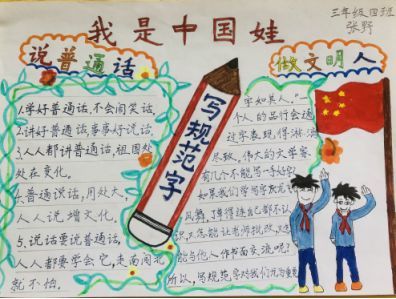 我是中国娃
三年级四班
张野
说普通话
做文明人
1.学好普通话,不会闹笑话,
2.讲好普通话,事事好说话,
3.人人都讲普通话,祖国处
处在变化。
4.普通话,用处大,
人人说增文化。
5.说话要说普通话,
人人都要学会它,走南闯北
就不怕。
写规范字
字如其人,“一
个人的品行会通
过字表现,得淋漓
尽致,伟大的文学家
有几个不能写一手好字
如果我们学写字
都不认
识,又怎能让老师批改,又怎
能与他人作书面交流呢?
所以,写规范字对我们尤为重要